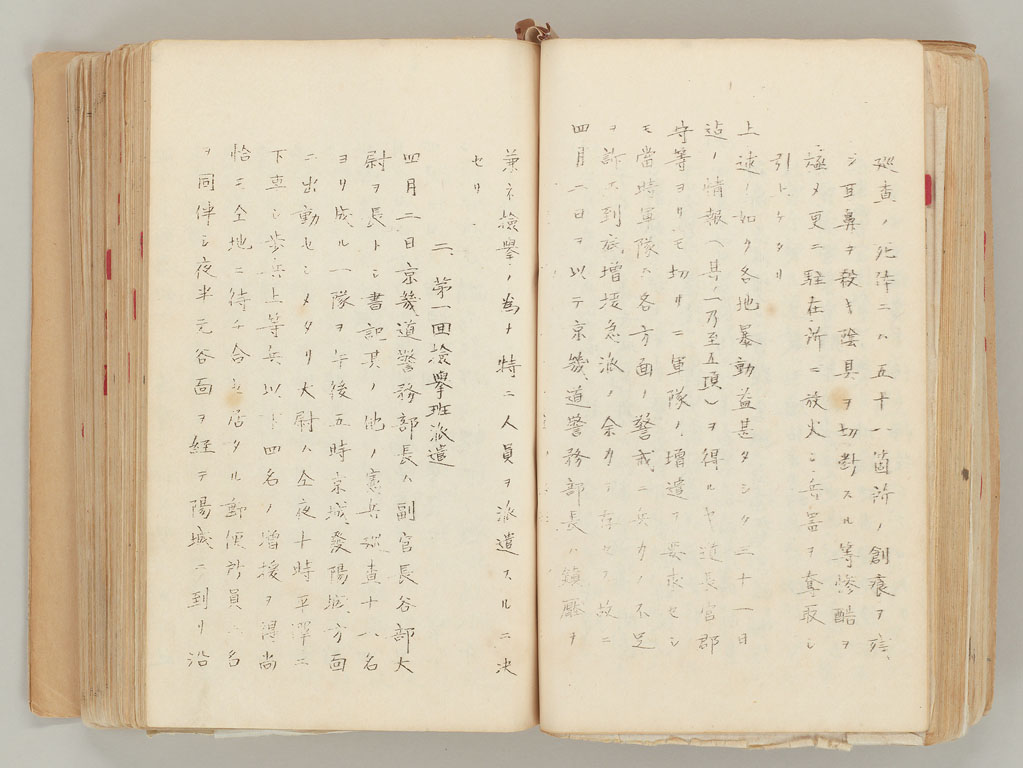 巡査ノ死体ニハ五十八箇所ノ創痕ヲ残
シ耳鼻ヲ殺キ陰具ヲ切断スル等惨酷ヲ
極メ更ニ駐在所ニ放火シ兵器ヲ奪取シ
引上ケタリ
上述ノ如ク各地暴動益甚タシク三十一日
迄ノ情報(其ノ一乃至五項)ヲ得ルヤ道長官郡
守等ヨリモ切リニ軍隊ノ増遣ヲ要求セシ
モ當時軍隊ハ各方面ノ警戒ニ兵力ノ不足
ヲ訴ヘ到底増援急派ノ余力ヲ有セス故ニ
四月一日ヲ以テ京畿道警務部長ハ鎮壓ヲ
兼ネ檢擧ノ為メ特ニ人員ヲ派遣スルニ决
セリ
二、第一回檢擧班派遣
四月二日京畿道警務部長ハ副官長谷部大
尉ヲ長トシ書記其ノ他ノ憲兵巡査十八名
ヨリ成ル一隊ヲ午後五時京城發陽城方面
ニ出動セシメタリ大尉ハ仝夜十時平澤ニ
下車シ歩兵上等兵以下四名ノ増援ヲ得尚
恰モ仝地ニ待チ合セ居タル郵便所員二名
ヲ同伴シ夜半元谷面ヲ経テ陽城ニ到リ沿